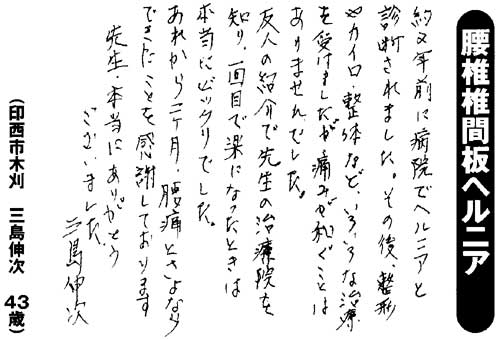 腰椎椎間板ヘルニア
約2年前に病院でヘルニアと
診断されました。その後、整形
やカイロ・整体など、いろいろな治療
を受けましたが痛みが和ぐことは
ありませんでした。
友人の紹介で先生の治療院を
知り、一回目で楽になったときは
本当にビックリでした。
あれから二ヶ月・腰痛とさよなら
できたことを感謝しております
先生・本当にありがとう
ございました。
三島伸次
(印西市木刈 三島伸次 43歳)